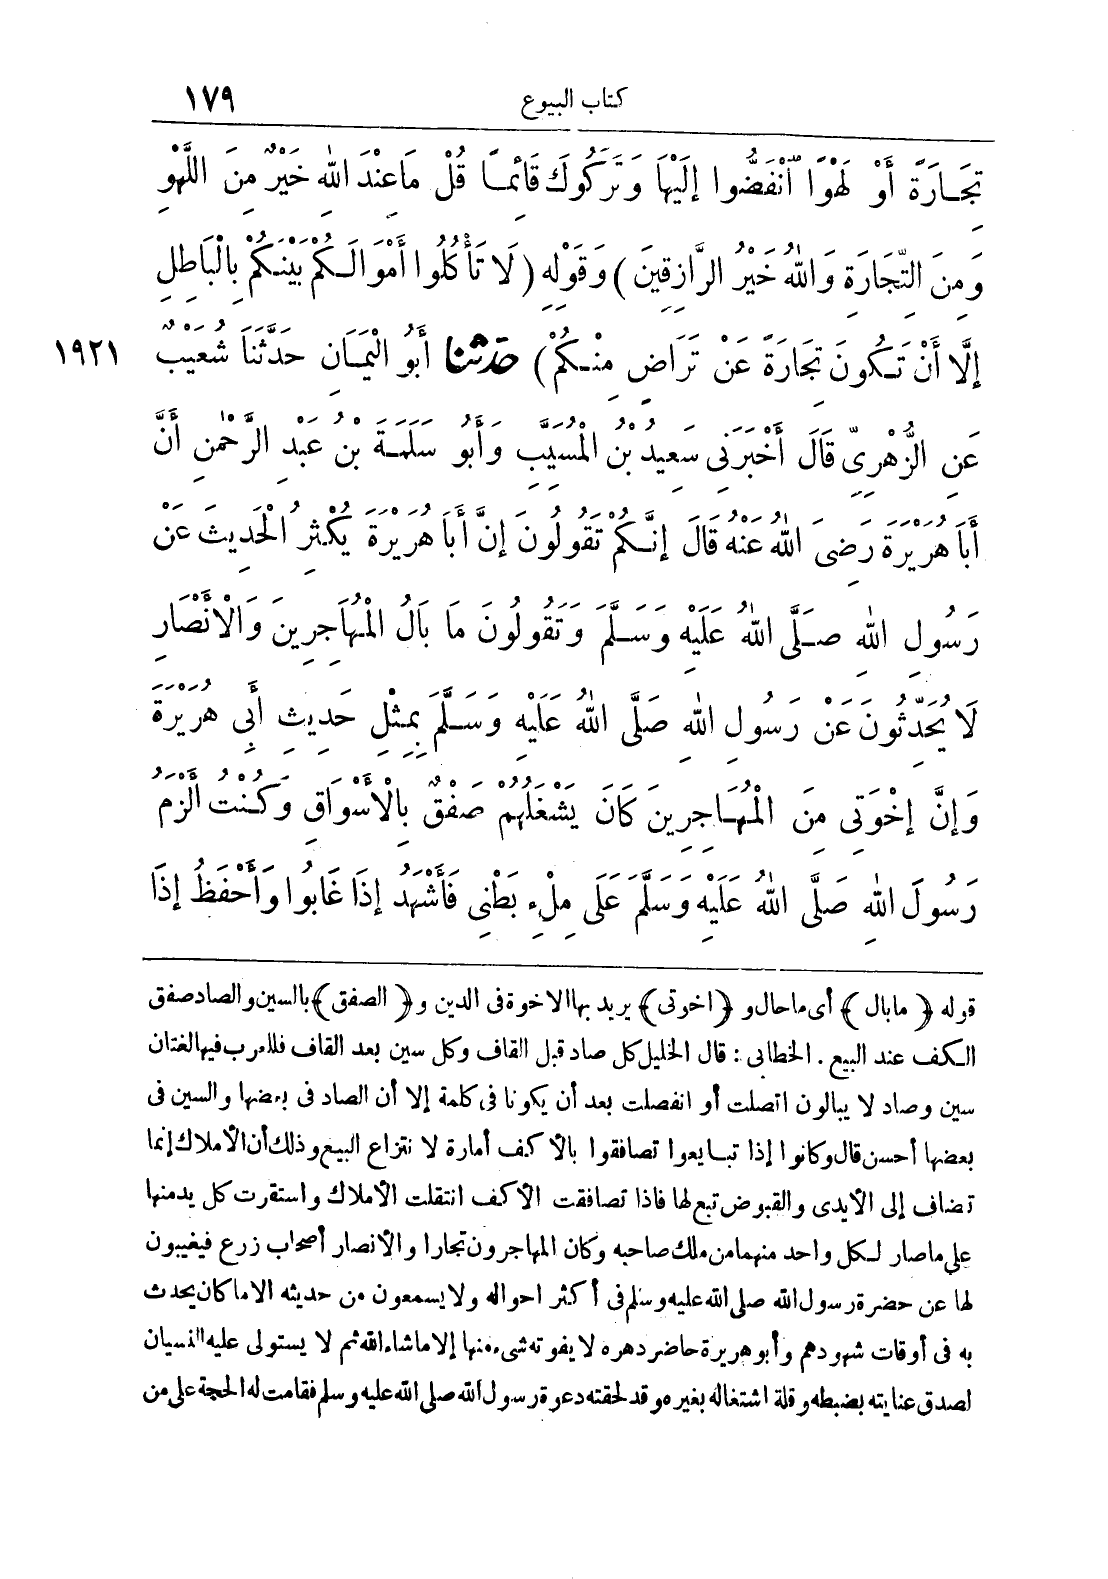 كتاب البيوع ١٧٩
تِجَارَةً أَوْ لَهْوًا ٱنْفَضُّوا إِلَيْهَا وَتَرَكُوكَ قَائِمًا قُلْ مَا عِنْدَ اللهِ خَيْرٌ مِنَ اللَّهْوِ
وَمِنَ التِّجَارَةِ وَاللهُ خَيْرُ الرَّازِقِينَ) وَقَوْلِهِ (لَا تَأْكُلُوا أَمْوَالَكُمْ بَيْنَكُمْ بِالْبَاطِلِ
إِلَّا أَنْ تَكُونَ تِجَارَةً عَنْ تَرَاضٍ مِنْكُمْ) حَدَّثَنَا أَبُو الْيَمَانِ حَدَّثَنَا شُعَيْبٌ ١٩٢١
عَنِ الزُّهْرِىِّ قَالَ أَخْبَرَنِى سَعِيدُ بْنُ الْمُسَيَّبِ وَأَبُو سَلَمَةَ بْنُ عَبْدِ الرَّحْمٰنِ أَنَّ
أَبَا هُرَيْرَةَ رَضِىَ اللهُ عَنْهُ قَالَ إِنَّكُمْ تَقُولُونَ إِنَّ أَبَا هُرَيْرَةَ يُكْثِرُ الْحَدِيثَ عَنْ
رَسُولِ اللهِ صَلَّى اللهُ عَلَيْهِ وَسَلَّمَ وَتَقُولُونَ مَا بَالُ الْمُهَاجِرِينَ وَالْأَنْصَارِ
لَا يُحَدِّثُونَ عَنْ رَسُولِ اللهِ صَلَّى اللهُ عَلَيْهِ وَسَلَّمَ بِمِثْلِ حَدِيثِ أَبِى هُرَيْرَةَ
وَإِنَّ إِخْوَتِى مِنَ الْمُهَاجِرِينَ كَانَ يَشْغَلُهُمْ صَفْقٌ بِالْأَسْوَاقِ وَكُنْتُ أَلْزَمُ
رَسُولَ اللهِ صَلَّى اللهُ عَلَيْهِ وَسَلَّمَ عَلَى مِلْءِ بَطْنِى فَأَشْهَدُ إِذَا غَابُوا وَأَحْفَظُ إِذَا
قوله ﴿ما بال﴾ أى ما حال و ﴿اخوتى﴾ يريد بها الاخوة فى الدين و ﴿الصفق﴾ بالسين والصاد صفق
الكف عند البيع . الخطابى : قال الخليل كل صاد قبل القاف وكل سين بعد القاف فللعرب فيها لغتان
سين وصاد لا يبالون اتصلت أو انفصلت بعد أن يكونا فى كلمة إلا أن الصاد فى بعضها والسين فى
بعضها أحسن قال وكانوا إذا تبايعوا تصافقوا بالأكف أمارة لا نتزاع البيع وذلك أن الأملاك إنما
تضاف إلى الأيدى والقبوض تبع لها فاذا تصافقت الأكف انتقلت الأملاك واستقرت كل يد منها
على ما صار لكل واحد منهما من ملك صاحبه وكان المهاجرون تجارا والأنصار أصحاب زرع فيغيبون
لها عن حضرة رسول الله صلى الله عليه وسلم فى أكثر احواله ولا يسمعون من حديثه الا ما كان يحدث
به فى أوقات شهودهم وأبو هريرة حاضر دهره لا يفوته شىء منها إلا ما شاء الله ثم لا يستولى عليه النسيان
لصدق عنايته بضبطه وقلة اشتغاله بغيره وقد لحقته دعوة رسول الله صلى الله عليه وسلم فقامت له الحجة على من